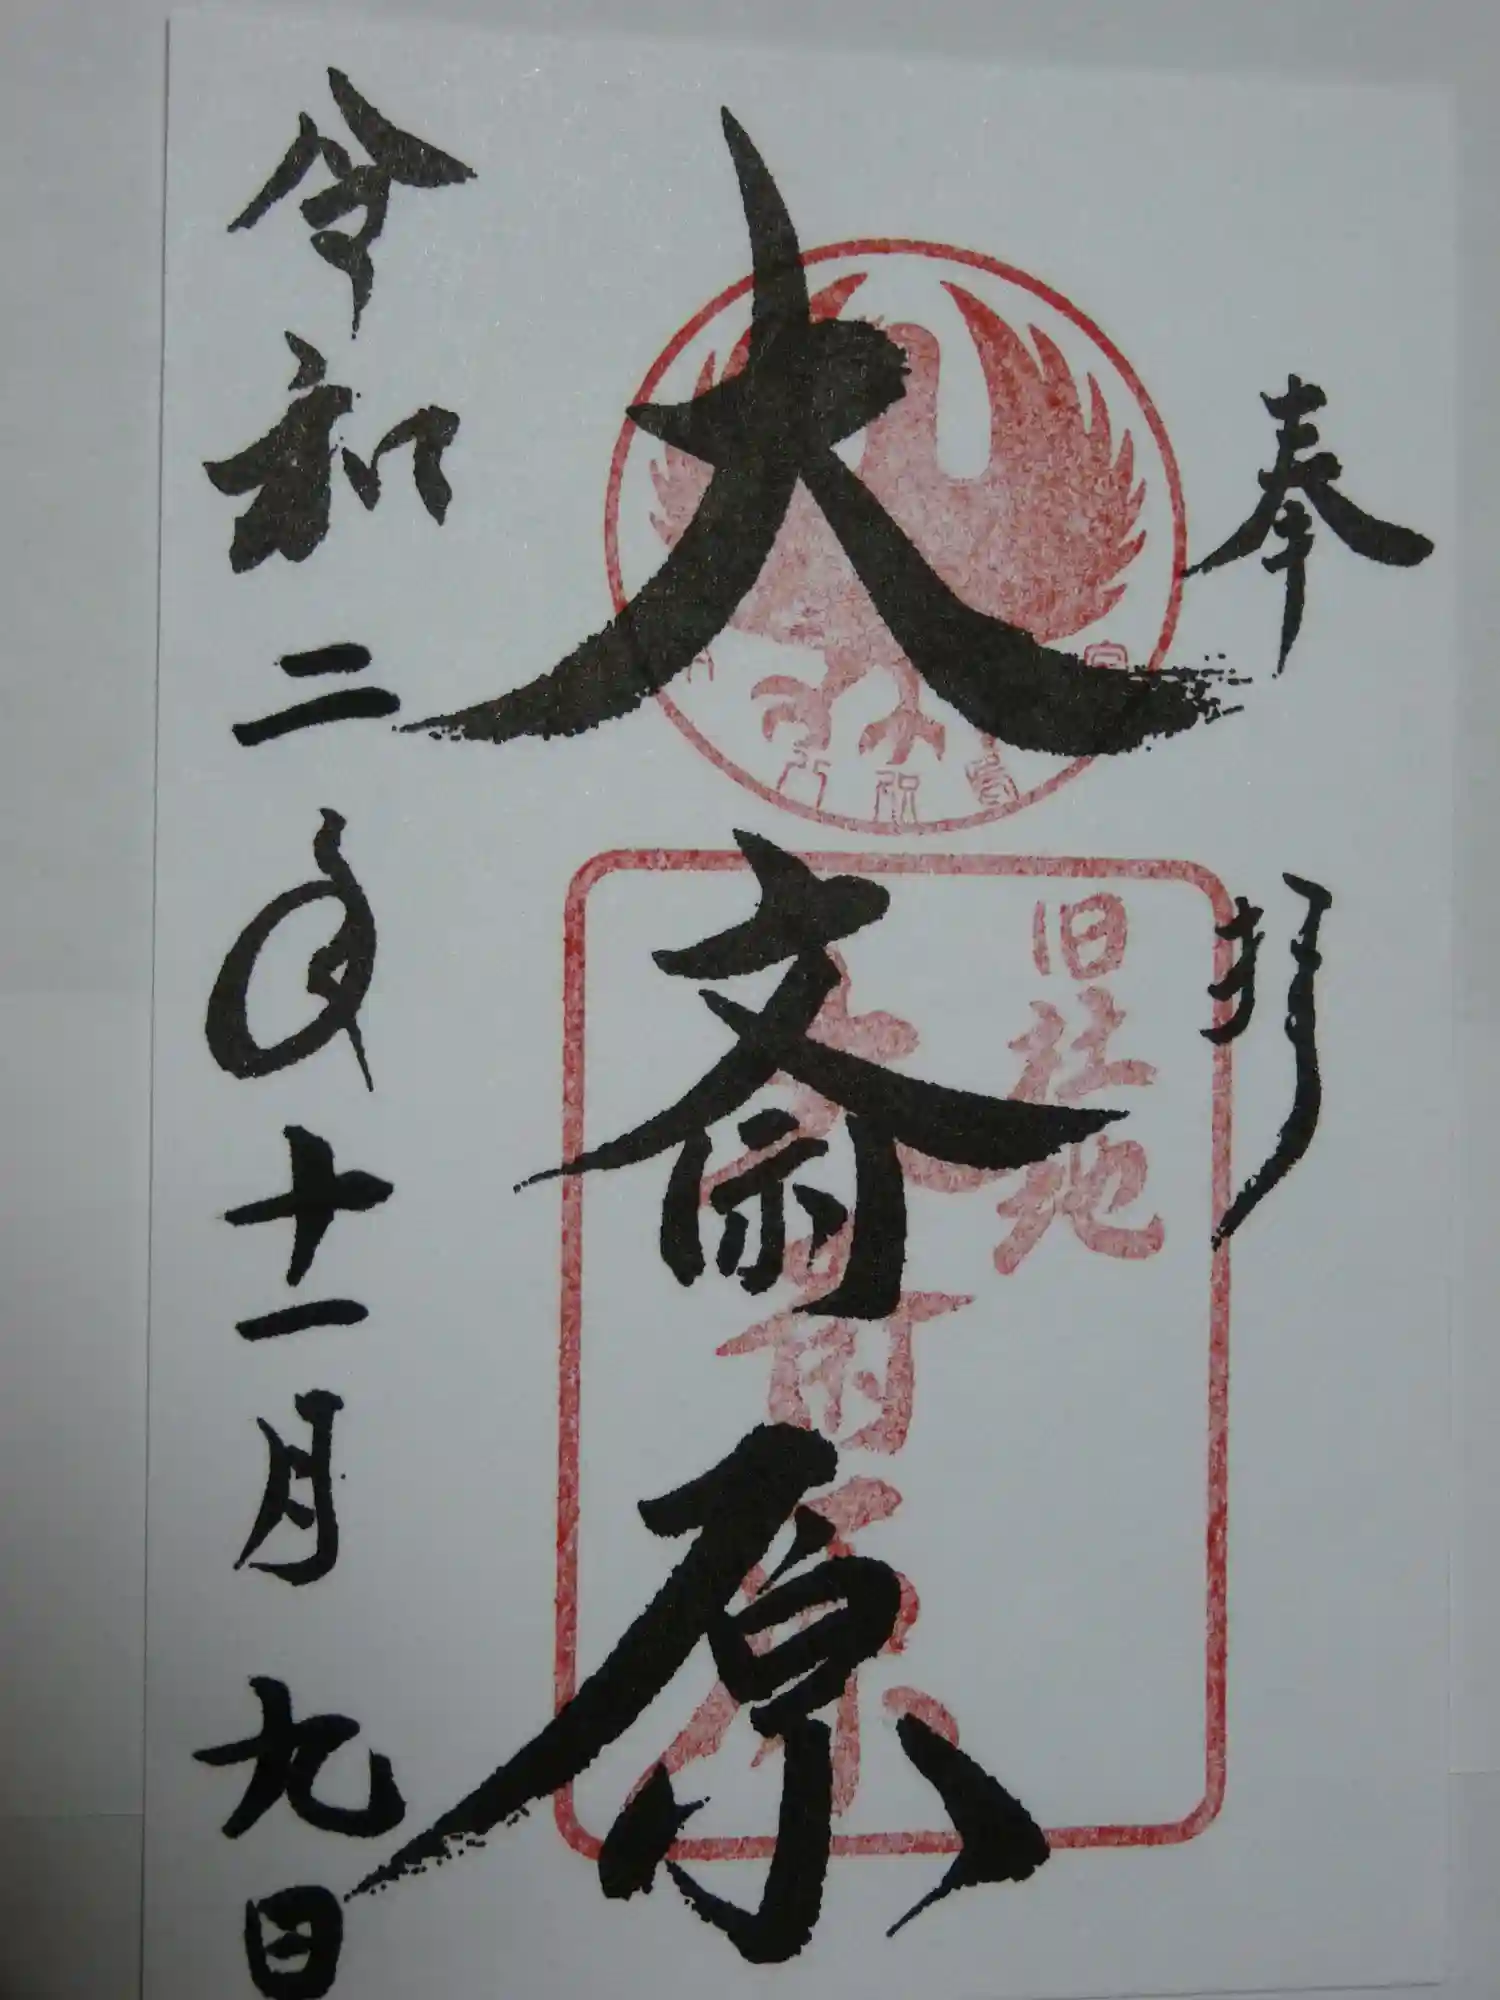 奉拝
大斎原
旧社地
大斎原
令和二年十一月九日